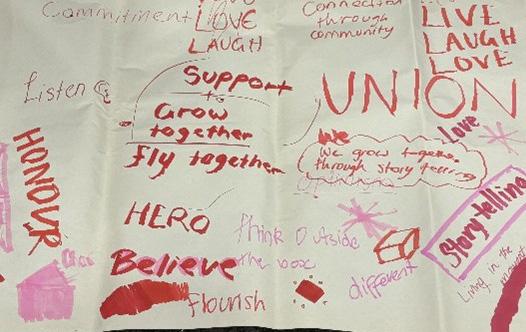 Commitment
LOVE
LAUGH
Connection
through
community
LIVE
LAUGH
LOVE
Listen
Support
to
Grow
together
fly together
UNION
Love
We
We grow together
through story telling
HONOUR
HERO
Think Outside
the box
Believe
Flourish
different
Story telling
Living in the
moment